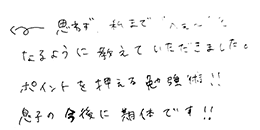 思わず、私まで「へぇ〜」と
なるように教えていただきました。
ポイントを押える勉強術!!
息子の今後に期待です!!